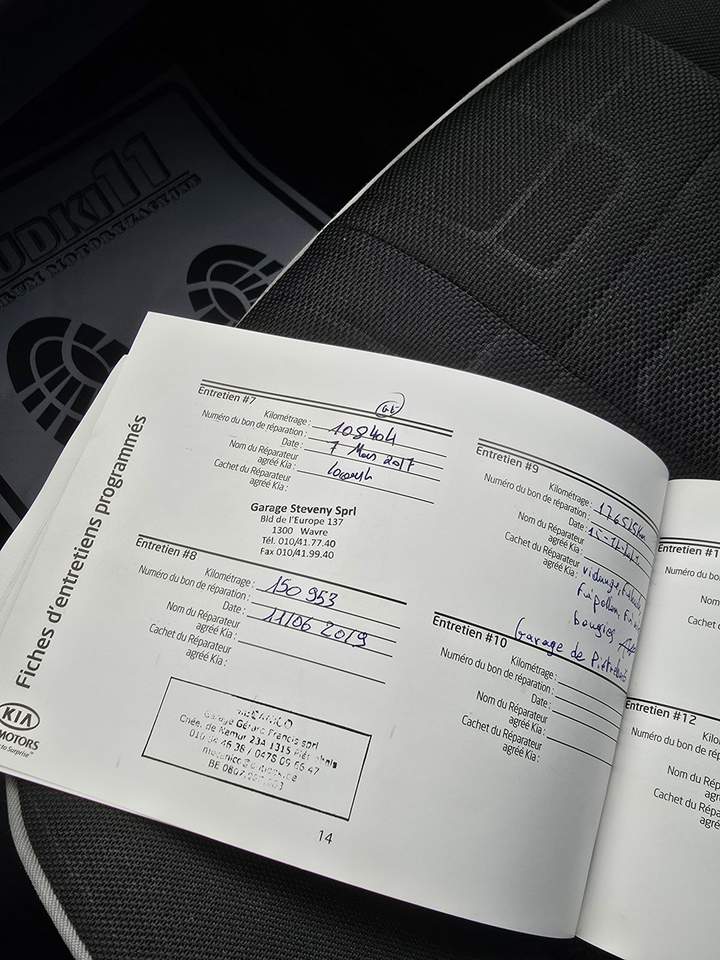 Fiches d'entretiens programmés
KIA
MOTORS
Entretien #7
Kilométrage : 108404
Numéro du bon de réparation :
Date : 7 Mars 2017
Nom du Réparateur
agréé Kia :
Cachet du Réparateur
agréé Kia :
Garage Steveny Sprl
Bld de l'Europe 137
1300 Wavre
Tél. 010/41.77.40
Fax 010/41.99.40
Entretien #8
Kilométrage : 150 953
Numéro du bon de réparation :
Date : 11/06 2019
Nom du Réparateur
agréé Kia :
Cachet du Réparateur
agréé Kia :
Garage Gérard Francis sprl
Chée. de Namur 23A 1315
14
Entretien #9
Kilométrage : 176515km
Numéro du bon de réparation :
Date :
Nom du Réparateur
agréé Kia :
Cachet du Réparateur
agréé Kia :
vidange,
bougies
Garage de
Entretien #10
Kilométrage :
Numéro du bon de réparation :
Date :
Nom du Réparateur
agréé Kia :
Cachet du Réparateur
agréé Kia :
Entretien #1
Numéro du bo
Nom
Cachet du Rép
Entretien #12
Numéro du bon de rép
Nom du Rép
Cachet du Répara